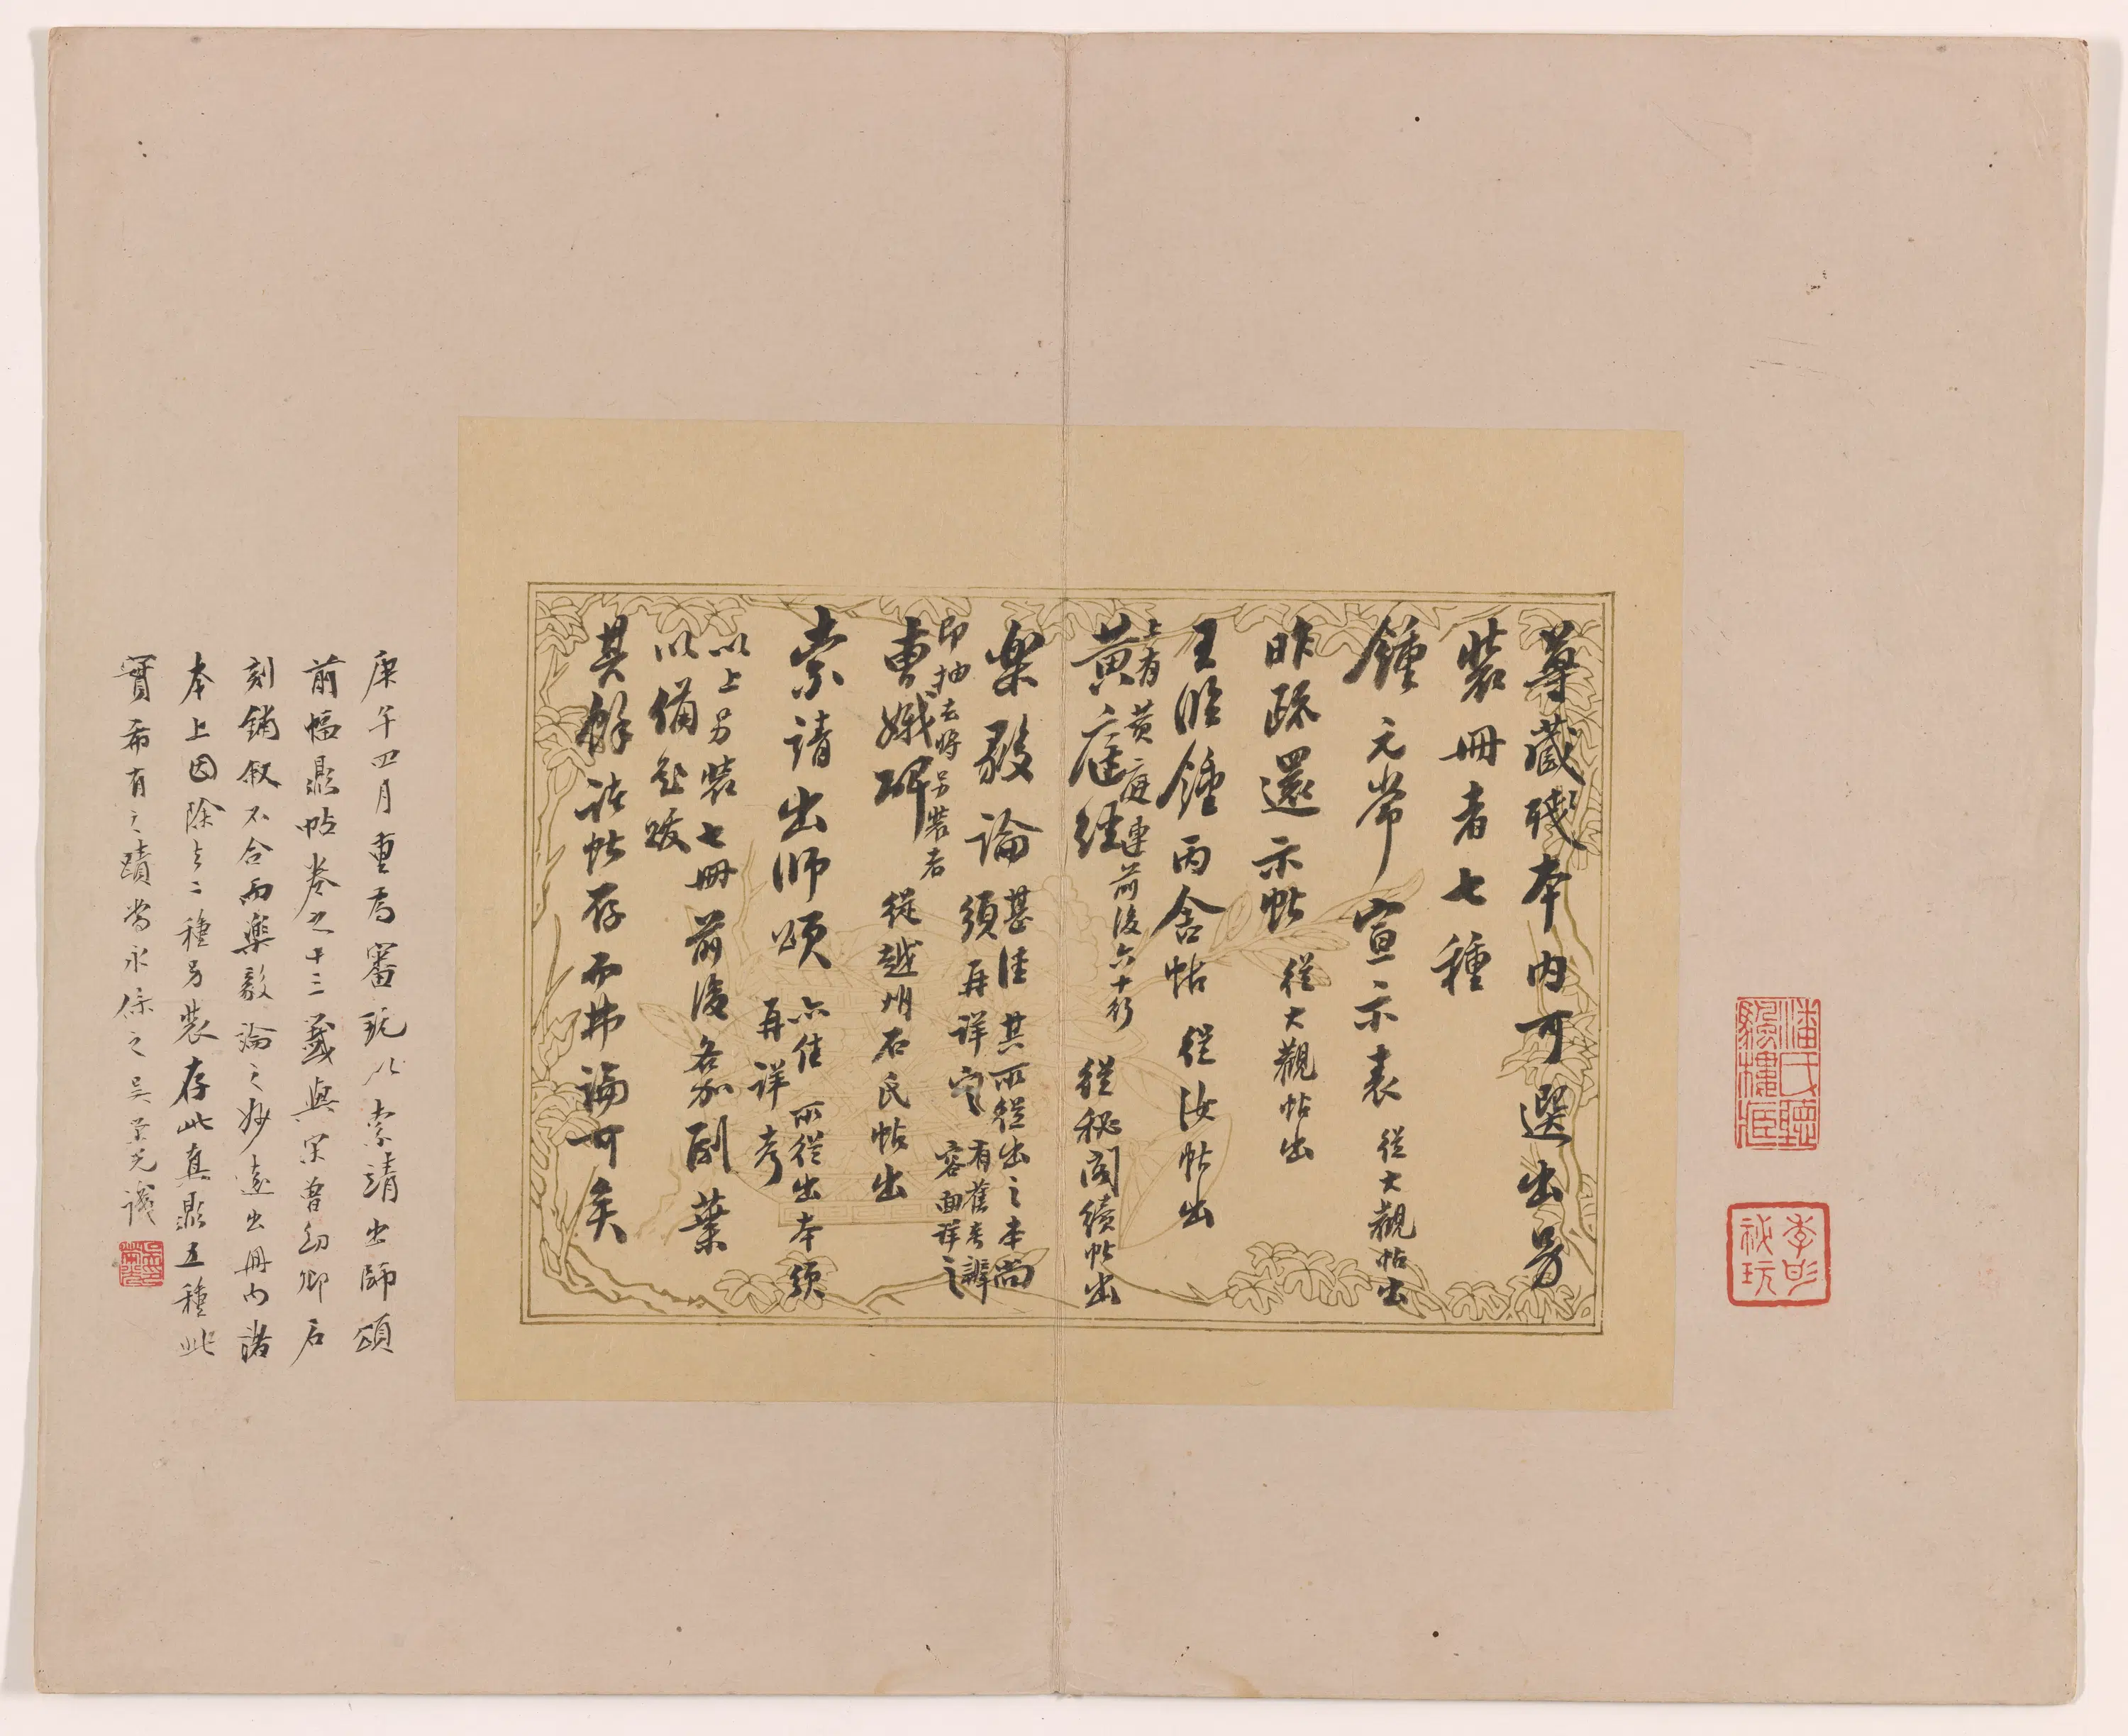 潘氏聽
颿樓藏
季彤
秘玩
尊藏殘本內可選出另
裝冊者七種
鍾元常宣示表 從大觀帖出
昨疏還示帖 從大觀帖出
王臨鍾丙舍帖 從汝帖出
上有黃庭連前後六十行
黃庭經 從秘閣續帖出
樂毅論 甚佳其所從出之本尚
須再詳定 有舊考辨
容面詳之
即抽去將另裝者
曹娥碑 從越州石氏帖出
索靖出師頌 亦佳所從出本須
再詳考
以上另裝七冊前後各加副葉
以備題跋
其餘諸帖存而弗論可矣
庚午四月重為審玩以索靖出師頌
前幅鼎帖卷之十三籤與宋曾幼卿石
刻鋪敘不合而樂毅論之妙遠出冊內諸
本上因除去二種另裝存此真鼎五種此
實希有之蹟當永保之吳榮光識